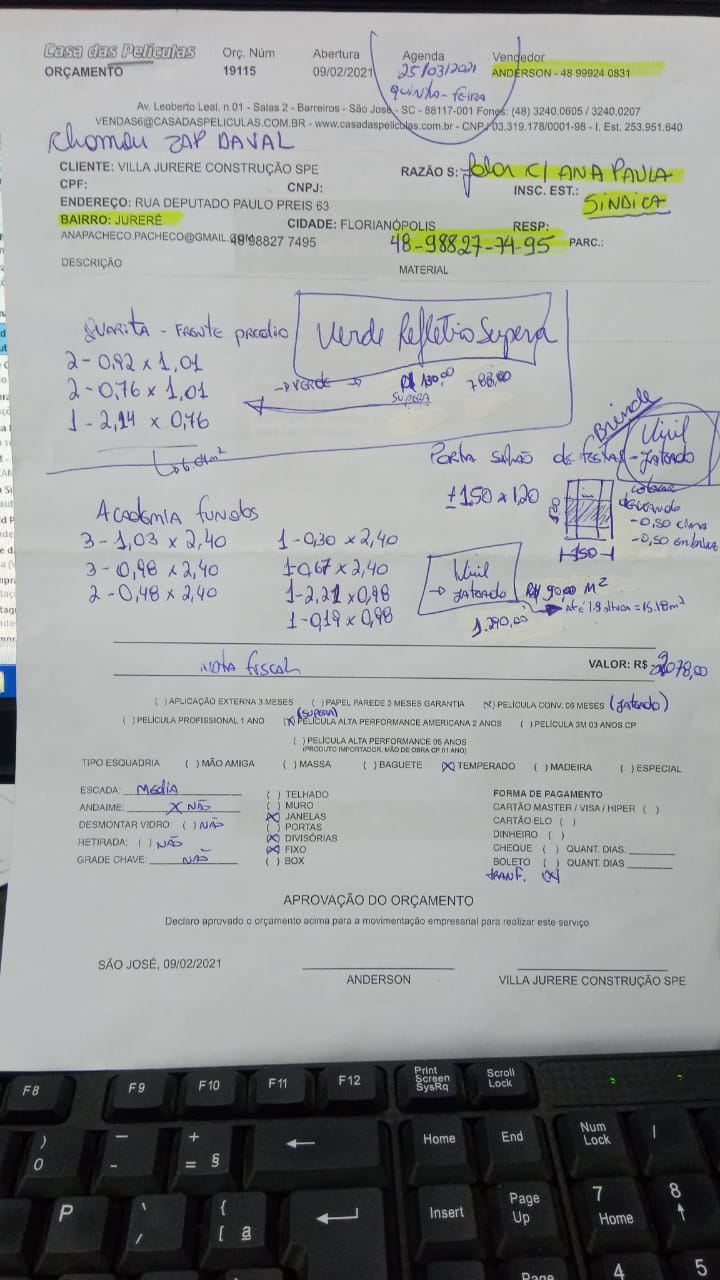 Casa das Películas
ORÇAMENTO
Orç. Núm
19115
Abertura
09/02/2021
Agenda
25/03/2021
quinta-feira
Vendedor
ANDERSON - 48 99924 0831
Av. Leoberto Leal, n 01 - Salas 2 - Barreiros - São José - SC - 88117-001 Fones: (48) 3240.0605 / 3240.0207
VENDAS6@CASADASPELICULAS.COM.BR - www.casadaspeliculas.com.br - CNPJ 03.319.178/0001-98 - I. Est. 253.951.640
ZAP DAVAL
CLIENTE: VILLA JURERE CONSTRUÇÃO SPE
RAZÃO S: falar C/ ANA PAULA
CPF:
CNPJ:
INSC. EST.: SINDICA
ENDEREÇO: RUA DEPUTADO PAULO PREIS 63
BAIRRO: JURERÊ
CIDADE: FLORIANÓPOLIS
RESP:
ANAPACHECO.PACHECO@GMAIL.COM
48 98827 7495
48-98827-74-95
PARC.:
DESCRIÇÃO
MATERIAL
GUARITA - FRENTE PREDIO
Verde Refletivo Supera
2 - 0,92 x 1,01
2 - 0,76 x 1,01
1 - 2,14 x 0,76
VERDE
R$ 130,00
788,00
SUPERA
Brinde
PORTA SALÃO DE FESTAS -
Vinil
Jateado
±1.50 x 1,20
colocar
deixando
-0,50 cima
-0,50 embaixo
150
ACADEMIA FUNDOS
3 - 1,03 x 2,40
3 - 0,98 x 2,40
2 - 0,48 x 2,40
1 - 0,30 x 2,40
1 - 0,67 x 2,40
1 - 2,21 x 0,98
1 - 0,19 x 0,98
Vinil
→ Jateado
R$ 90,00 M²
Até 1.9 altura = 15.18m²
1.290,00
Nota fiscal
VALOR: R$ 2078,00
( ) APLICAÇÃO EXTERNA 3 MESES ( ) PAPEL PAREDE 3 MESES GARANTIA (X) PELÍCULA CONV. 06 MESES (Jateado)
(Supera)
( ) PELÍCULA PROFISSIONAL 1 ANO (X) PELÍCULA ALTA PERFORMANCE AMERICANA 2 ANOS ( ) PELÍCULA 3M 03 ANOS CP
( ) PELÍCULA ALTA PERFORMANCE 05 ANOS
(PRODUTO IMPORTADOR, MÃO DE OBRA CP 01 ANO)
TIPO ESQUADRIA ( ) MÃO AMIGA ( ) MASSA ( ) BAGUETE (X) TEMPERADO ( ) MADEIRA ( ) ESPECIAL
ESCADA: MEDIA
ANDAIME: X NÃO
DESMONTAR VIDRO: ( ) NÃO
RETIRADA: ( ) NÃO
GRADE CHAVE: NÃO
( ) TELHADO
( ) MURO
(X) JANELAS
( ) PORTAS
(X) DIVISÓRIAS
(X) FIXO
( ) BOX
FORMA DE PAGAMENTO
CARTÃO MASTER / VISA / HIPER ( )
CARTÃO ELO ( )
DINHEIRO ( )
CHEQUE ( ) QUANT. DIAS:
BOLETO ( ) QUANT. DIAS
TRANF. (X)
APROVAÇÃO DO ORÇAMENTO
Declaro aprovado o orçamento acima para a movimentação empresarial para realizar este serviço
SÃO JOSÉ, 09/02/2021
ANDERSON
VILLA JURERE CONSTRUÇÃO SPE
F8
F9
F10
F11
F12
Print
Screen
SysRq
Scroll
Lock
Home
End
Num
Lock
/
)
0
_
-
+
= §
P
`
{
[ ª
Insert
Page
Up
7
Home
8
4
5
Page